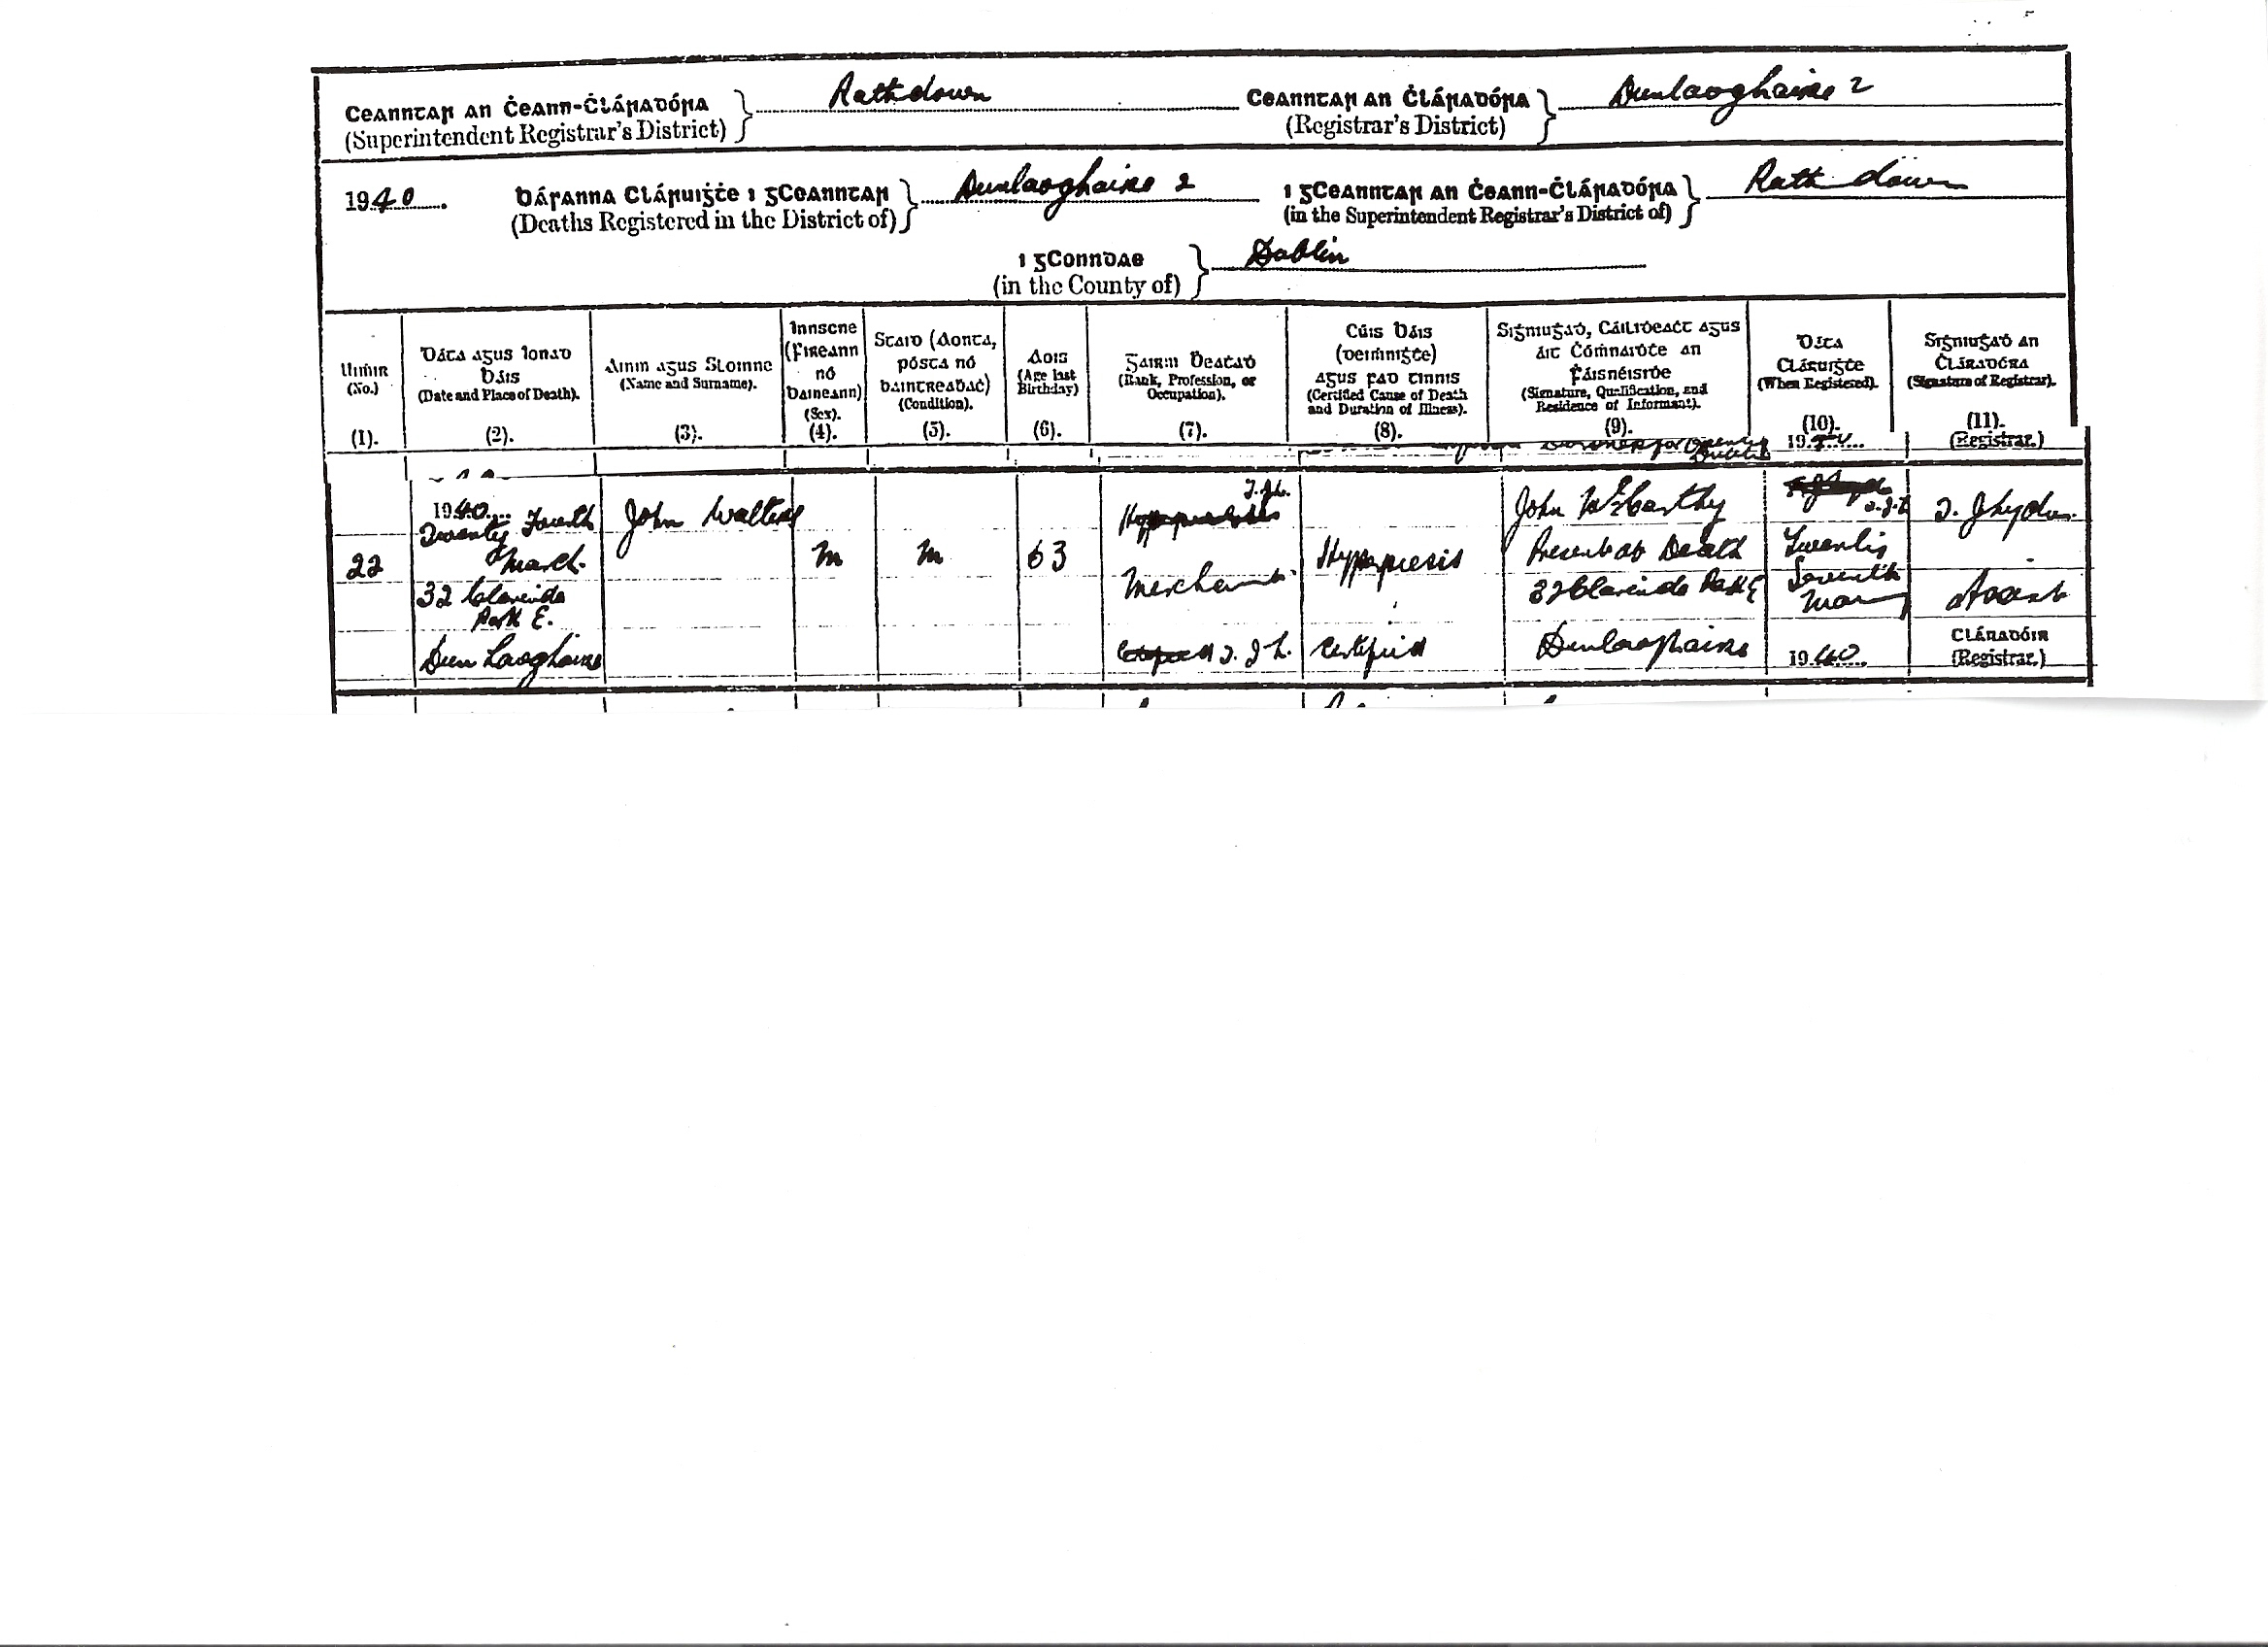 Ceanntar an Ċeann-Ċláraḋóra Rathdown Ceanntar an Ċláraḋóra Dunlaoghaire 2
(Superintendent Registrar's District) (Registrar's District)
1940 Báranna Cláruiġṫe i gCeanntar Dunlaoghaire 2 i gCeanntar an Ċeann-Ċláraḋóra Rathdown
(Deaths Registered in the District of) (in the Superintendent Registrar's District of)
i gConndae Dublin
(in the County of)
Uimhir
(No.)
(1).
Dáta agus Ionad
Báis
(Date and Place of Death).
(2).
Ainm agus Sloinne
(Name and Surname).
(3).
Innscne
(Fireann
nó
baineann)
(Sex).
(4).
Staid (Aonta,
pósta nó
baintreaḃaċ)
(Condition).
(5).
Aois
(Age last
Birthday)
(6).
Gairm Beaṫaḋ
(Rank, Profession, or
Occupation).
(7).
Cúis Báis
(deiṁniġṫe)
agus fad tinnis
(Certified Cause of Death
and Duration of Illness).
(8).
Siġniuġaḋ, Cáilíḋeaċt agus
áit Cóṁnaiḋṫe an
Fáisnéisiḋe
(Signature, Qualification, and
Residence of Informant).
(9).
Dáta
Cláruiġṫe
(When Registered).
(10).
Siġniuġaḋ an
Ċláraḋóra
(Signature of Registrar).
(11).
19
(Registrar.)
22
1940
Twenty Fourth
March
32 Clarinda
Park E.
Dun Laoghaire
John Walters
M
M
63
Merchant
T. J. L.
Hyperpiesis
Certified
John McCarthy
Present at Death
32 Clarinda Park E
Dunlaoghaire
Twenty
Seventh
Mar
1940
Assist
Cláraḋóir
(Registrar.)